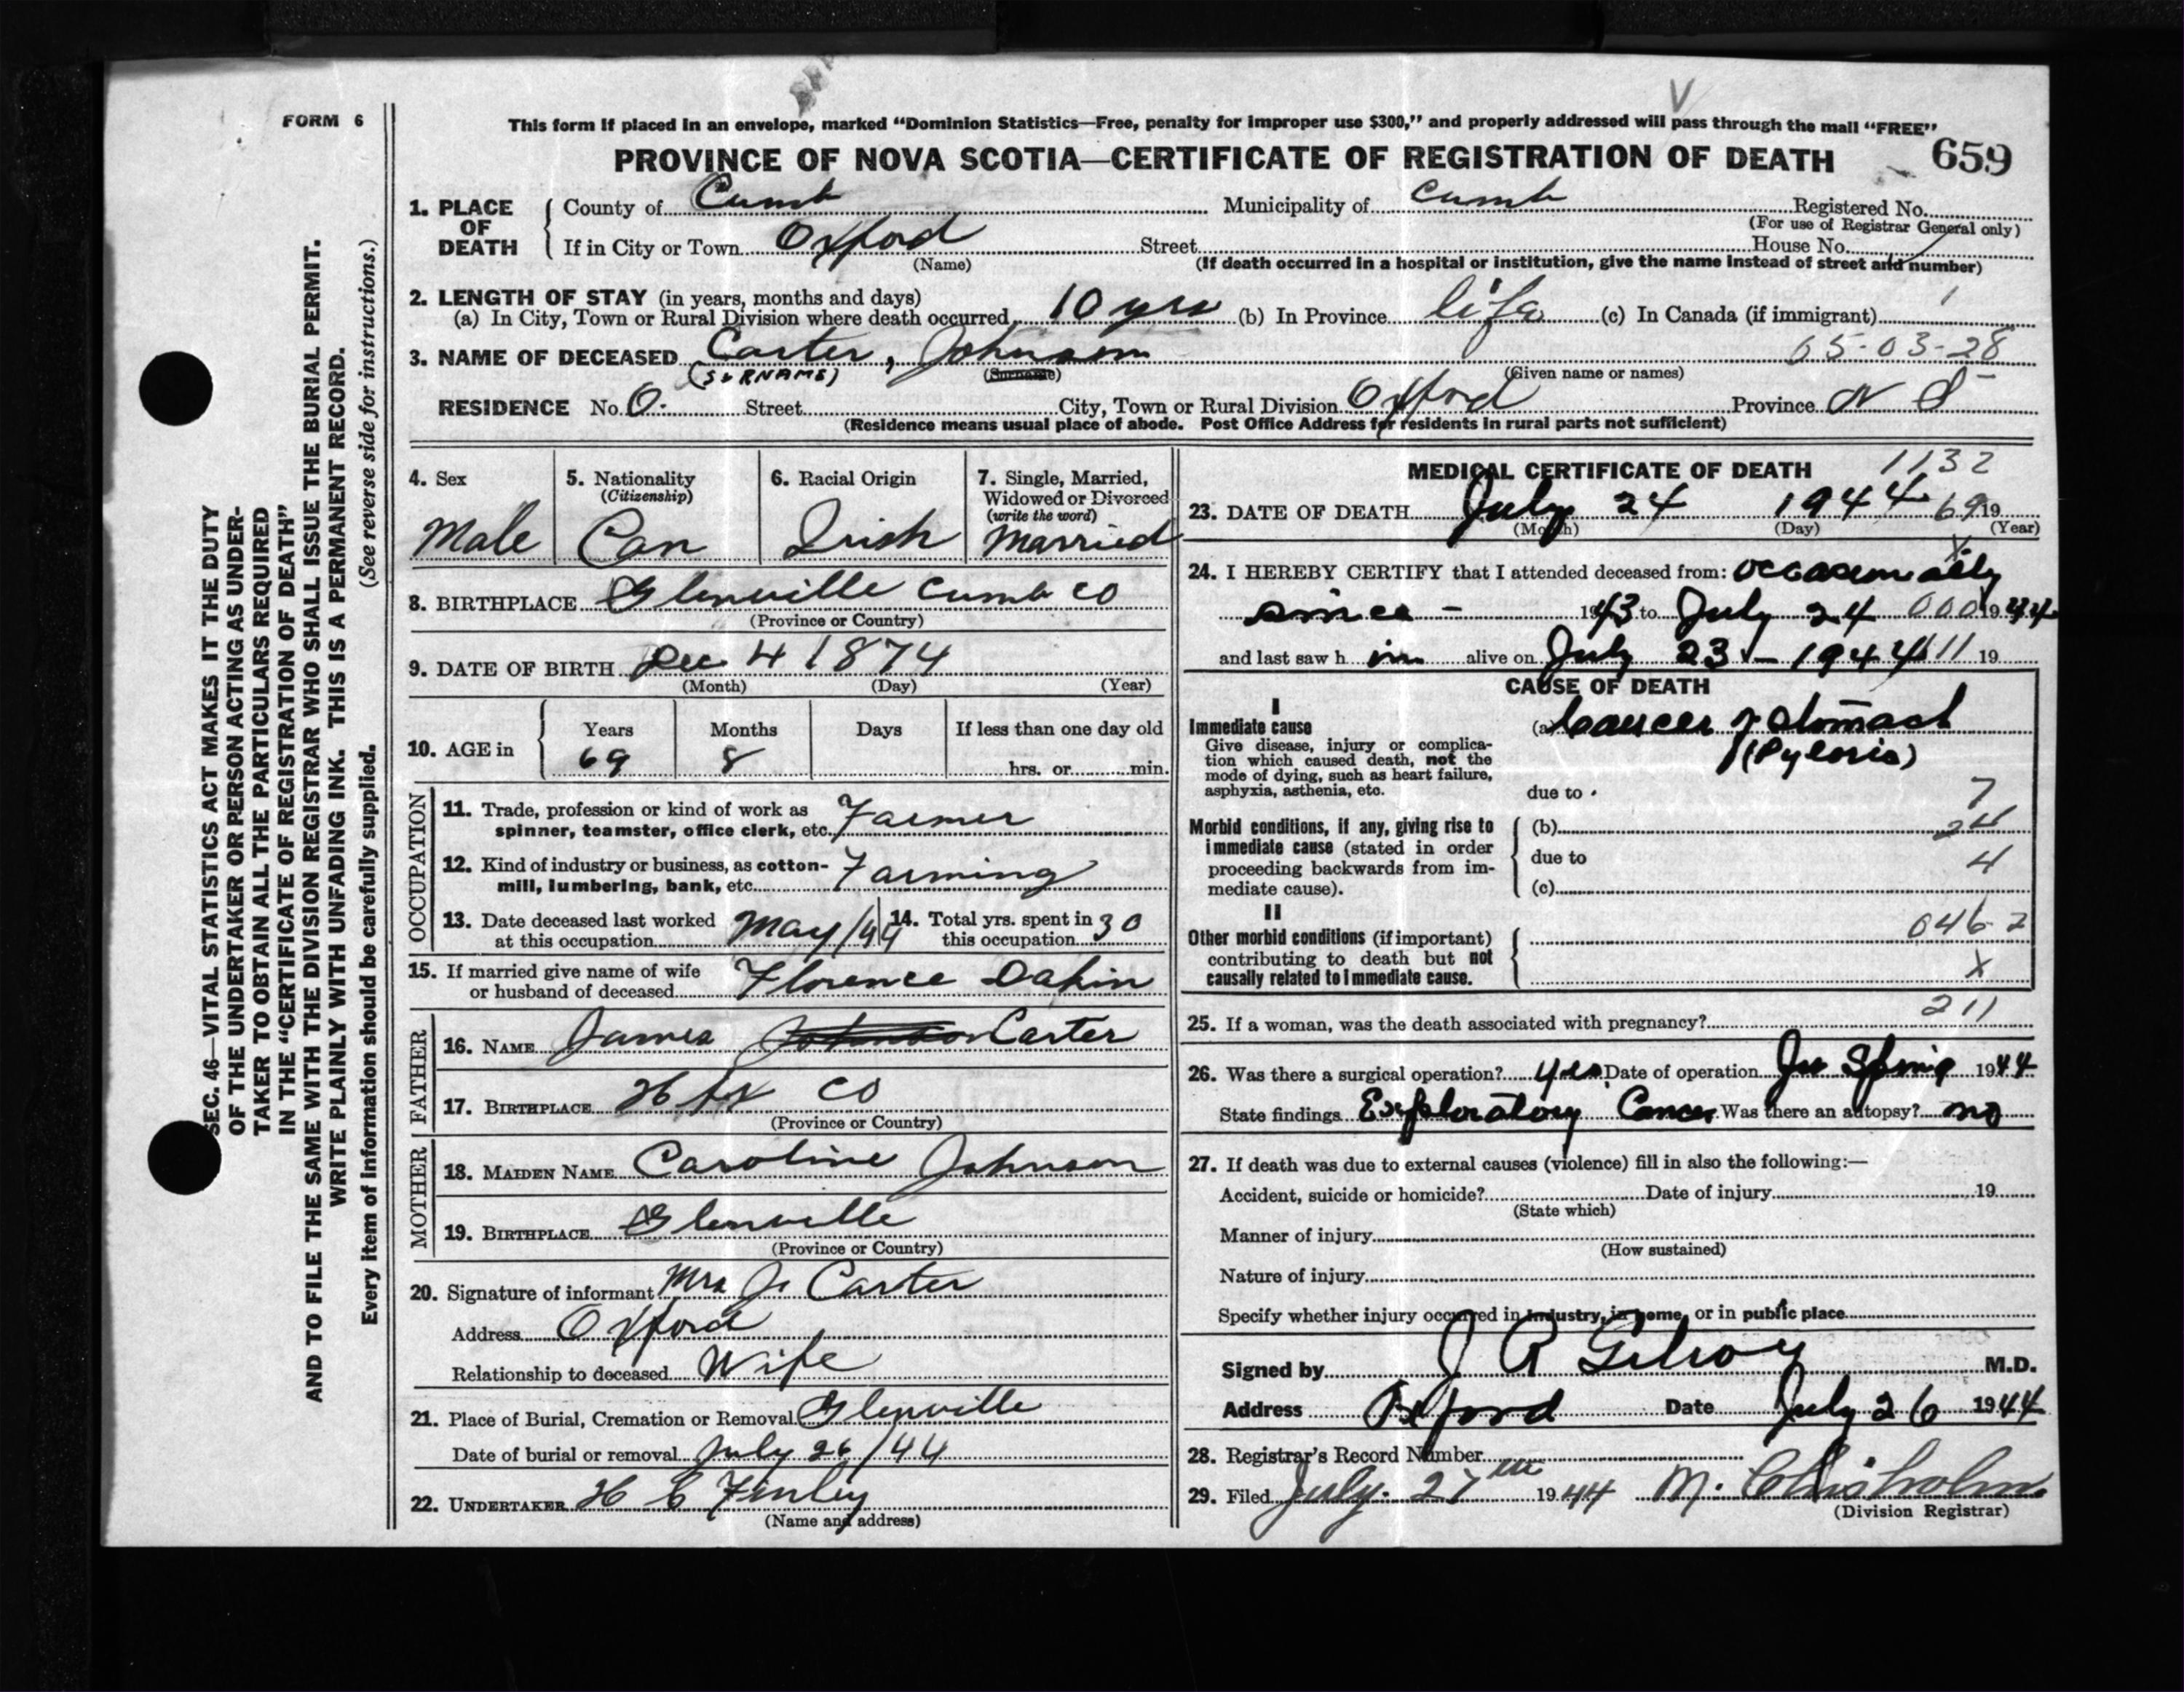 FORM 6
This form if placed in an envelope, marked “Dominion Statistics—Free, penalty for improper use $300,” and properly addressed will pass through the mail “FREE”
PROVINCE OF NOVA SCOTIA—CERTIFICATE OF REGISTRATION OF DEATH 659
1. PLACE OF DEATH County of Cumb Municipality of Cumb Registered No.
(For use of Registrar General only)
If in City or Town Oxford Street House No.
(Name) (If death occurred in a hospital or institution, give the name instead of street and number)
2. LENGTH OF STAY (in years, months and days)
(a) In City, Town or Rural Division where death occurred 10 yrs (b) In Province life (c) In Canada (if immigrant)
3. NAME OF DECEASED Carter, Johnson 65-03-28
(SURNAME) (Surname) (Given name or names)
RESIDENCE No. O. Street City, Town or Rural Division Oxford Province N S
(Residence means usual place of abode. Post Office Address for residents in rural parts not sufficient)
4. Sex 5. Nationality 6. Racial Origin 7. Single, Married,
(Citizenship) Widowed or Divorced
(write the word)
Male Can Irish Married
8. BIRTHPLACE Glenville Cumb Co
(Province or Country)
9. DATE OF BIRTH Dec 4 1874
(Month) (Day) (Year)
10. AGE in Years Months Days If less than one day old
69 8 hrs. or min.
OCCUPATION
11. Trade, profession or kind of work as
spinner, teamster, office clerk, etc. Farmer
12. Kind of industry or business, as cotton-
mill, lumbering, bank, etc. Farming
13. Date deceased last worked
at this occupation May/44 14. Total yrs. spent in
this occupation 30
15. If married give name of wife
or husband of deceased Florence Dakin
FATHER
16. NAME James Johnson Carter
17. BIRTHPLACE Hfx Co
(Province or Country)
MOTHER
18. MAIDEN NAME Caroline Johnson
19. BIRTHPLACE Glenville
(Province or Country)
20. Signature of informant Mrs J. Carter
Address Oxford
Relationship to deceased Wife
21. Place of Burial, Cremation or Removal Glenville
Date of burial or removal July 26/44
22. UNDERTAKER H C Finley
(Name and address)
MEDICAL CERTIFICATE OF DEATH 1132
23. DATE OF DEATH July 24 1944 69 19
(Month) (Day) (Year)
24. I HEREBY CERTIFY that I attended deceased from: occasionally
since - 1943 to July 24 000 1944
and last saw h im alive on July 23 - 1944 611 19
CAUSE OF DEATH
I
Immediate cause (a) Cancer of Stomach
Give disease, injury or complica-
tion which caused death, not the
mode of dying, such as heart failure,
asphyxia, asthenia, etc.
(Pyloris)
due to 7
Morbid conditions, if any, giving rise to
immediate cause (stated in order
proceeding backwards from im-
mediate cause).
(b) 24
due to 4
(c)
II
Other morbid conditions (if important)
contributing to death but not
causally related to immediate cause.
046-2
X
25. If a woman, was the death associated with pregnancy? 211
26. Was there a surgical operation? yes. Date of operation In Spring 1944
State findings Exploratory Cancer Was there an autopsy? no
27. If death was due to external causes (violence) fill in also the following:—
Accident, suicide or homicide? Date of injury 19
(State which)
Manner of injury
(How sustained)
Nature of injury
Specify whether injury occurred in industry, in home, or in public place
Signed by J R Gilroy M.D.
Address Oxford Date July 26 1944
28. Registrar's Record Number
29. Filed July. 27th 1944 M. Chisholm
(Division Registrar)
SEC. 46—VITAL STATISTICS ACT MAKES IT THE DUTY
OF THE UNDERTAKER OR PERSON ACTING AS UNDER-
TAKER TO OBTAIN ALL THE PARTICULARS REQUIRED
IN THE “CERTIFICATE OF REGISTRATION OF DEATH”
AND TO FILE THE SAME WITH THE DIVISION REGISTRAR WHO SHALL ISSUE THE BURIAL PERMIT.
WRITE PLAINLY WITH UNFADING INK. THIS IS A PERMANENT RECORD.
(See reverse side for instructions.)
Every item of information should be carefully supplied.